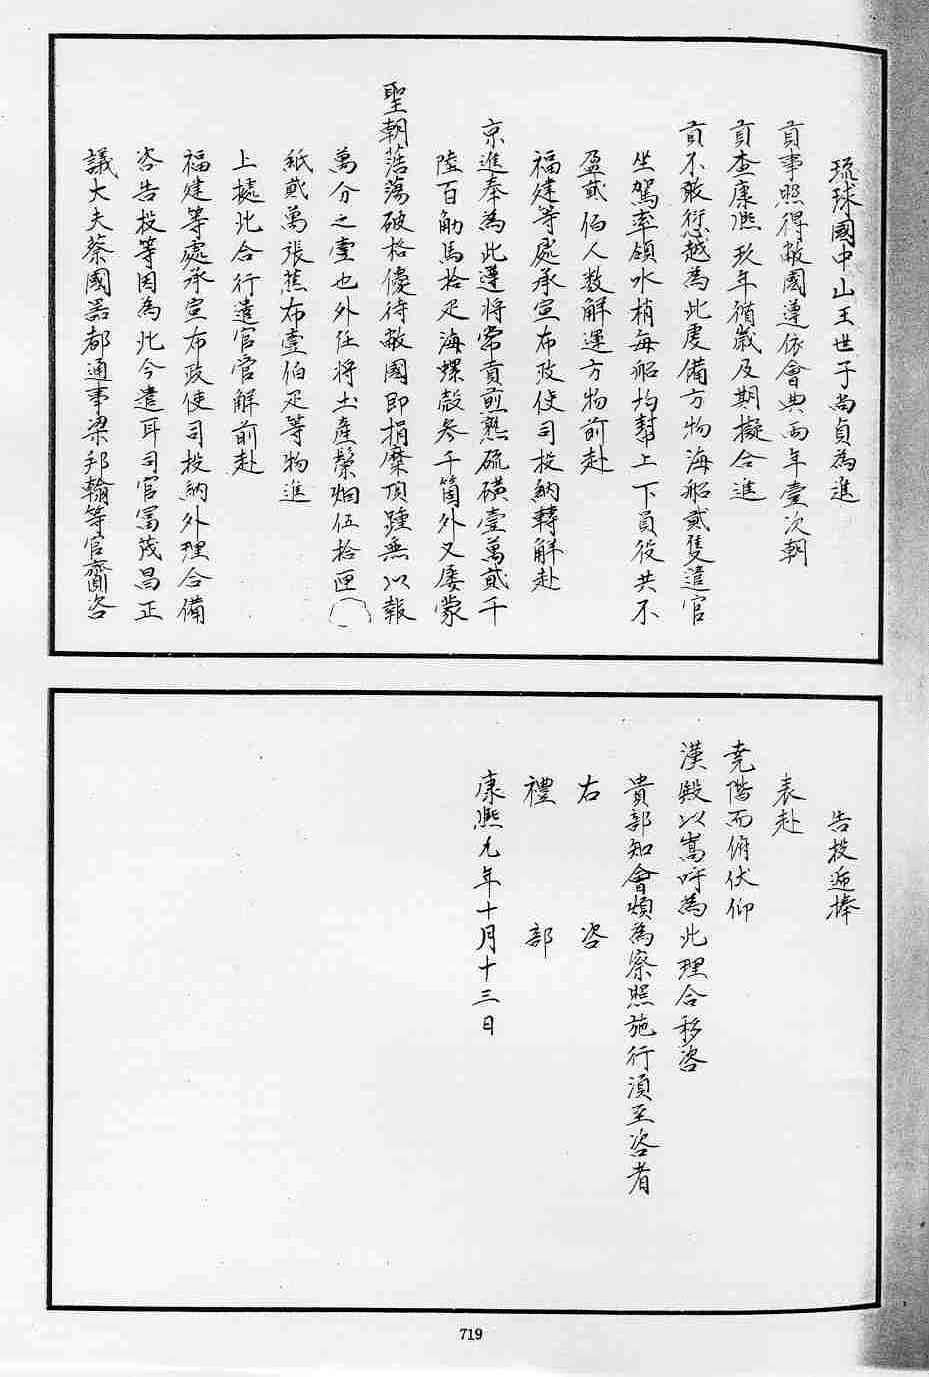 琉球國中山王世子尚貞為進
貢事照得敝國遵依會典兩年壹次朝
貢查康熙玖年循歲及期擬合進
貢不敢愆越為此虔備方物海船貳隻遣官
坐駕率領水梢每船均幫上下員役共不
盈貳伯人數解運方物前赴
福建等處承宣布政使司投納轉解赴
京進奉為此遵將常貢煎熟硫磺壹萬貳千
陸百觔馬拾疋海螺殼叁千箇外又屢蒙
聖朝蕩蕩破格優待敝國即捐糜頂踵無以報
萬分之壹也外任將土產𦂶烟伍拾匣
紙貳萬張蕉布壹伯疋等物進
上據此合行遣官官解前赴
福建等處承宣布政使司投納外理合備
咨告投等因為此今遣耳司官冨茂昌正
議大夫蔡國器都通事梁邦翰等官齎咨
告投逓捧
表赴
堯階而俯伏仰
漢殿以嵩呼為此理合移咨
貴部知會煩為察照施行湏至咨者
右咨
禮部
康熙九年十月十三日
719